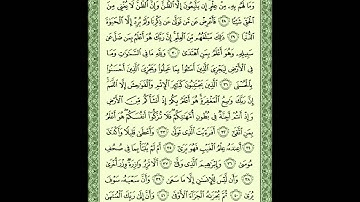 وَمَا لَهُم بِهِۦ مِنْ عِلْمٍ إِن يَتَّبِعُونَ إِلَّا ٱلظَّنَّ وَإِنَّ ٱلظَّنَّ لَا يُغْنِى مِنَ
ٱلْحَقِّ شَيْـًٔا ٢٨ فَأَعْرِضْ عَن مَّن تَوَلَّىٰ عَن ذِكْرِنَا وَلَمْ يُرِدْ إِلَّا ٱلْحَيَوٰةَ
ٱلدُّنْيَا ٢٩ ذَٰلِكَ مَبْلَغُهُم مِّنَ ٱلْعِلْمِ إِنَّ رَبَّكَ هُوَ أَعْلَمُ بِمَن ضَلَّ عَن
سَبِيلِهِۦ وَهُوَ أَعْلَمُ بِمَنِ ٱهْتَدَىٰ ٣٠ وَلِلَّهِ مَا فِى ٱلسَّمَٰوَٰتِ وَمَا
فِى ٱلْأَرْضِ لِيَجْزِىَ ٱلَّذِينَ أَسَٰٓـُٔوا۟ بِمَا عَمِلُوا۟ وَيَجْزِىَ ٱلَّذِينَ أَحْسَنُوا۟
بِٱلْحُسْنَى ٣١ ٱلَّذِينَ يَجْتَنِبُونَ كَبَٰٓئِرَ ٱلْإِثْمِ وَٱلْفَوَٰحِشَ إِلَّا ٱللَّمَمَ
إِنَّ رَبَّكَ وَٰسِعُ ٱلْمَغْفِرَةِ هُوَ أَعْلَمُ بِكُمْ إِذْ أَنشَأَكُم مِّنَ ٱلْأَرْضِ
وَإِذْ أَنتُمْ أَجِنَّةٌ فِى بُطُونِ أُمَّهَٰتِكُمْ فَلَا تُزَكُّوٓا۟ أَنفُسَكُمْ هُوَ أَعْلَمُ
بِمَنِ ٱتَّقَىٰٓ ٣٢ أَفَرَءَيْتَ ٱلَّذِى تَوَلَّىٰ ٣٣ وَأَعْطَىٰ قَلِيلًا وَأَكْدَىٰٓ
٣٤ أَعِندَهُۥ عِلْمُ ٱلْغَيْبِ فَهُوَ يَرَىٰٓ ٣٥ أَمْ لَمْ يُنَبَّأْ بِمَا فِى صُحُفِ
مُوسَىٰ ٣٦ وَإِبْرَٰهِيمَ ٱلَّذِى وَفَّىٰٓ ٣٧ أَلَّا تَزِرُ وَازِرَةٌ وِزْرَ أُخْرَىٰ
٣٨ وَأَن لَّيْسَ لِلْإِنسَٰنِ إِلَّا مَا سَعَىٰ ٣٩ وَأَنَّ سَعْيَهُۥ سَوْفَ
يُرَىٰ ٤٠ ثُمَّ يُجْزَىٰهُ ٱلْجَزَآءَ ٱلْأَوْفَىٰ ٤١ وَأَنَّ إِلَىٰ رَبِّكَ ٱلْمُنتَهَىٰ